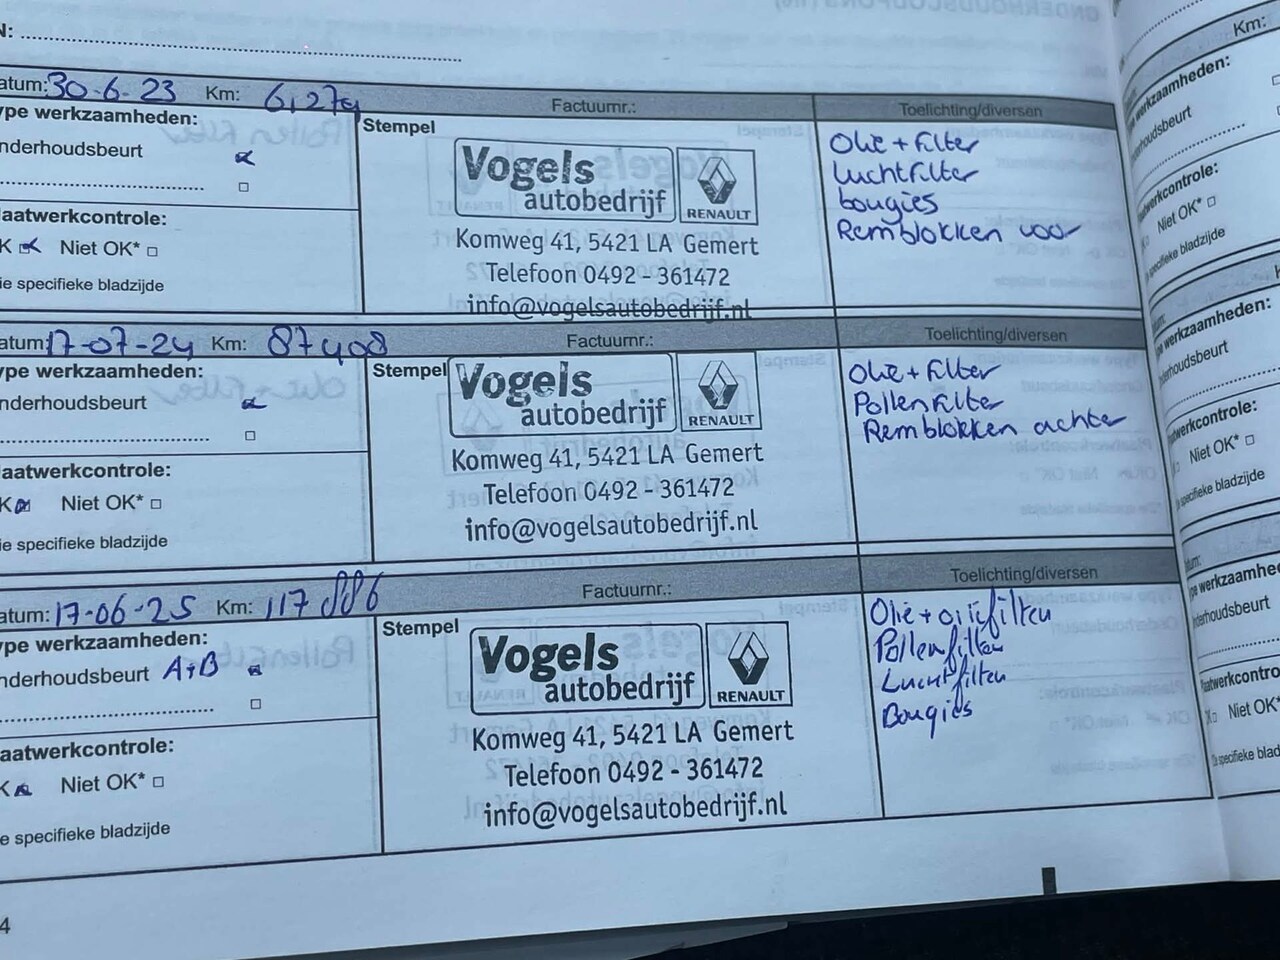 N:
atum: 30-6-23 Km: 61,279 Factuurnr.: Toelichting/diversen
ype werkzaamheden:
nderhoudsbeurt
aatwerkcontrole:
K Niet OK*
ie specifieke bladzijde
Stempel
Vogels
autobedrijf
RENAULT
Komweg 41, 5421 LA Gemert
Telefoon 0492 - 361472
info@vogelsautobedrijf.nl
Olie + Filter
Luchtfilter
bougies
Remblokken voor
atum: 17-07-24 Km: 87408 Factuurnr.: Toelichting/diversen
ype werkzaamheden:
nderhoudsbeurt
aatwerkcontrole:
K Niet OK*
ie specifieke bladzijde
Stempel
Vogels
autobedrijf
RENAULT
Komweg 41, 5421 LA Gemert
Telefoon 0492 - 361472
info@vogelsautobedrijf.nl
Olie + Filter
Pollenfilter
Remblokken achter
atum: 17-06-25 Km: 117 886 Factuurnr.: Toelichting/diversen
ype werkzaamheden:
nderhoudsbeurt A+B
aatwerkcontrole:
K Niet OK*
e specifieke bladzijde
Stempel
Vogels
autobedrijf
RENAULT
Komweg 41, 5421 LA Gemert
Telefoon 0492 - 361472
info@vogelsautobedrijf.nl
Olie + oliefilter
Pollenfilter
Luchtfilter
Bougies
4
Km:
werkzaamheden:
nderhoudsbeurt
aatwerkcontrole:
Niet OK*
specifieke bladzijde
werkzaamheden:
nderhoudsbeurt
aatwerkcontrole:
Niet OK*
specifieke bladzijde
werkzaamhede
nderhoudsbeurt
aatwerkcontro
Niet OK*
specifieke bladzijd